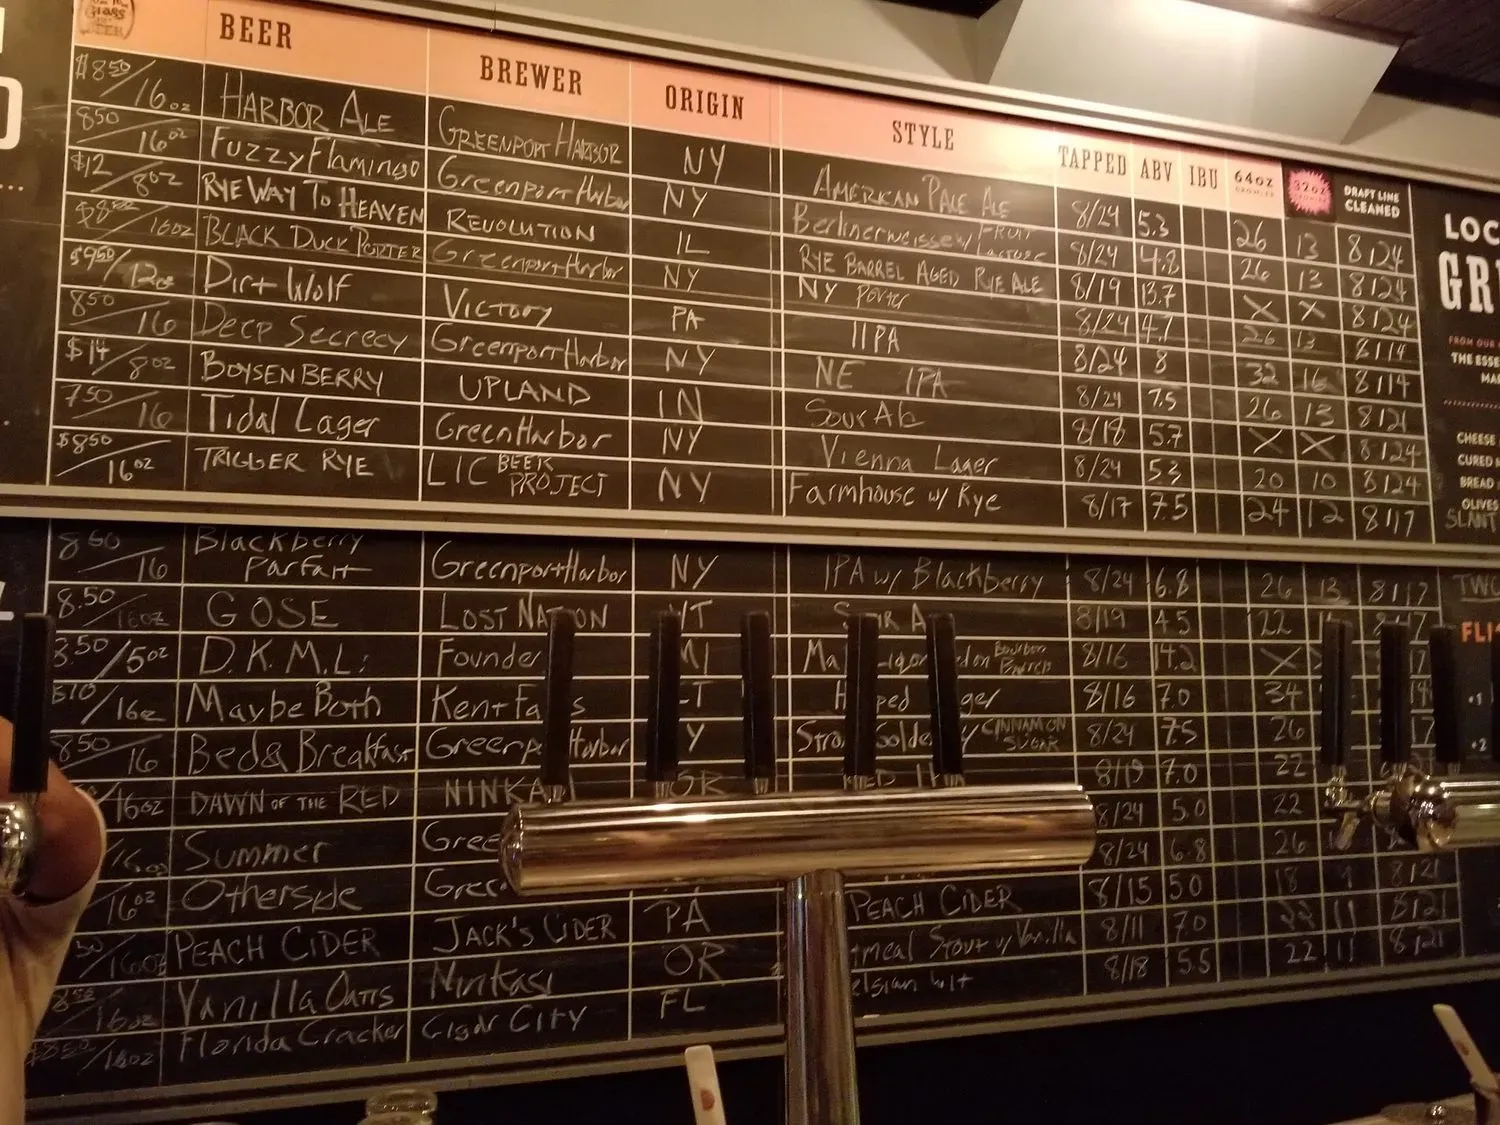 Glass
BEER BREWER ORIGIN STYLE TAPPED ABV IBU 64oz 32oz DRAFT LINE CLEANED
$8.50/16oz HARBOR ALE GREENPORT HARBOR NY AMERICAN PALE ALE 8/24 5.3 26 13 8/24
8.50/16oz Fuzzy Flamingo Greenport Harbor NY Berlinerweisse w/ FRUIT Lactose 8/24 4.8 26 13 8/24
$12/8oz RYE WAY TO HEAVEN REVOLUTION IL RYE BARREL AGED RYE ALE 8/19 13.7 X X 8/24
16oz BLACK DUCK PORTER Greenport Harbor NY NY Porter 8/24 4.7 26 13 8/14
$9.50/12oz Dirt Wolf VICTORY PA IIPA 8/24 8 32 16 8/14
8.50/16 Deep Secrecy Greenport Harbor NY NE IPA 8/24 7.5 26 13 8/21
$14/8oz BOYSENBERRY UPLAND IN Sour Ale 8/18 5.7 X X 8/24
7.50/16 Tidal Lager Green Harbor NY Vienna Lager 8/24 5.3 20 10 8/24
$8.50/16oz TRIGGER RYE LIC BEER PROJECT NY Farmhouse w/ Rye 8/17 7.5 24 12 8/17
8.50/16 Blackberry Parfait Greenport Harbor NY IPA w/ Blackberry 8/24 6.8 26 13 8/17
8.50/16oz GOSE LOST NATION VT 8/19 4.5 22
3.50/5oz D.K.M.L: Founder MI Bourbon Barrels 8/16 14.2 X
$10/16oz Maybe Both Kent Fa s 8/16 7.0 34
8.50/16 Bed & Breakfast Harbor CINNAMON SUGAR 8/24 7.5 26
16oz DAWN OF THE RED NINKA OR 8/19 7.0 22
16oz Summer Gree 8/24 5.0 22
16oz Otherside Gree 8/24 6.8 26
16oz PEACH CIDER JACK'S CIDER PA PEACH CIDER 8/15 5.0 18 8/21
16oz Vanilla Oatis Ninkasi OR Stout w/ Vanilla 8/11 7.0 22 11 8/21
$8.50/16oz Florida Cracker Cigar City FL elgian Wit 8/18 5.5 22 11 8/21
LOC
GR
FROM OUR
THE ESSE
MA
CHEESE
CURED
BREAD
OLIVES
SLANT
TWO
FLI
+1
+2